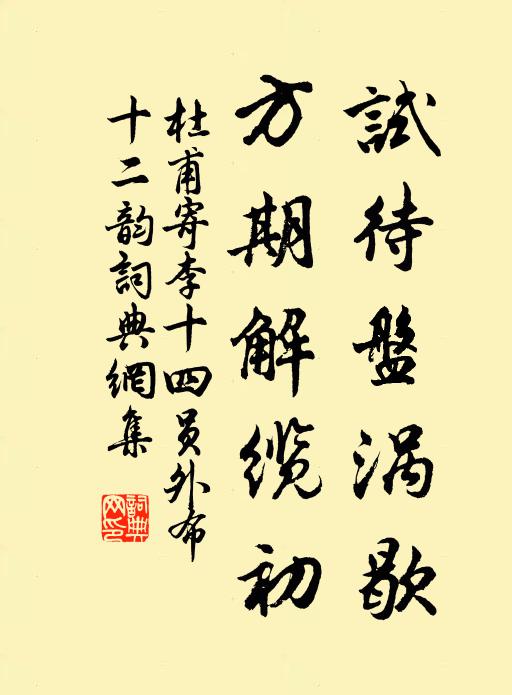 試待盤渦歇
方期解缆初
杜甫寄李十四员外布
十二韵詞典網集
詞典網印